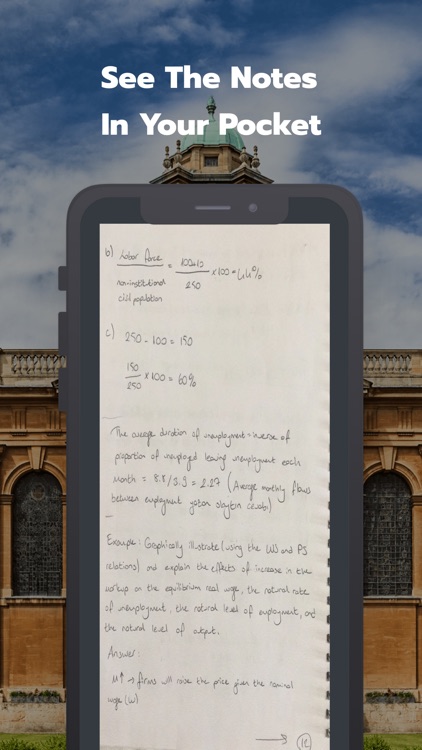 See The Notes
In Your Pocket
b) Labor force = 100+10 / 250 ×100 = 44%
noninstitutional
civil population
c) 250 - 100 = 150
150 / 250 × 100 = 60%
The average duration of unemployment = inverse of
proportion of unemployed leaving unemployment each
Month = 8.8 / 3.9 = 2.27 (Average monthly flows
between employment
Example: Graphically illustrate (using the WS and PS
relations) and explain the effects of increase in the
markup on the equilibrium real wage, the natural rate
of unemployment, the natural level of employment, and
the natural level of output.
Answer:
M↑ → firms will raise the price given the nominal
wage (W)
→ 12